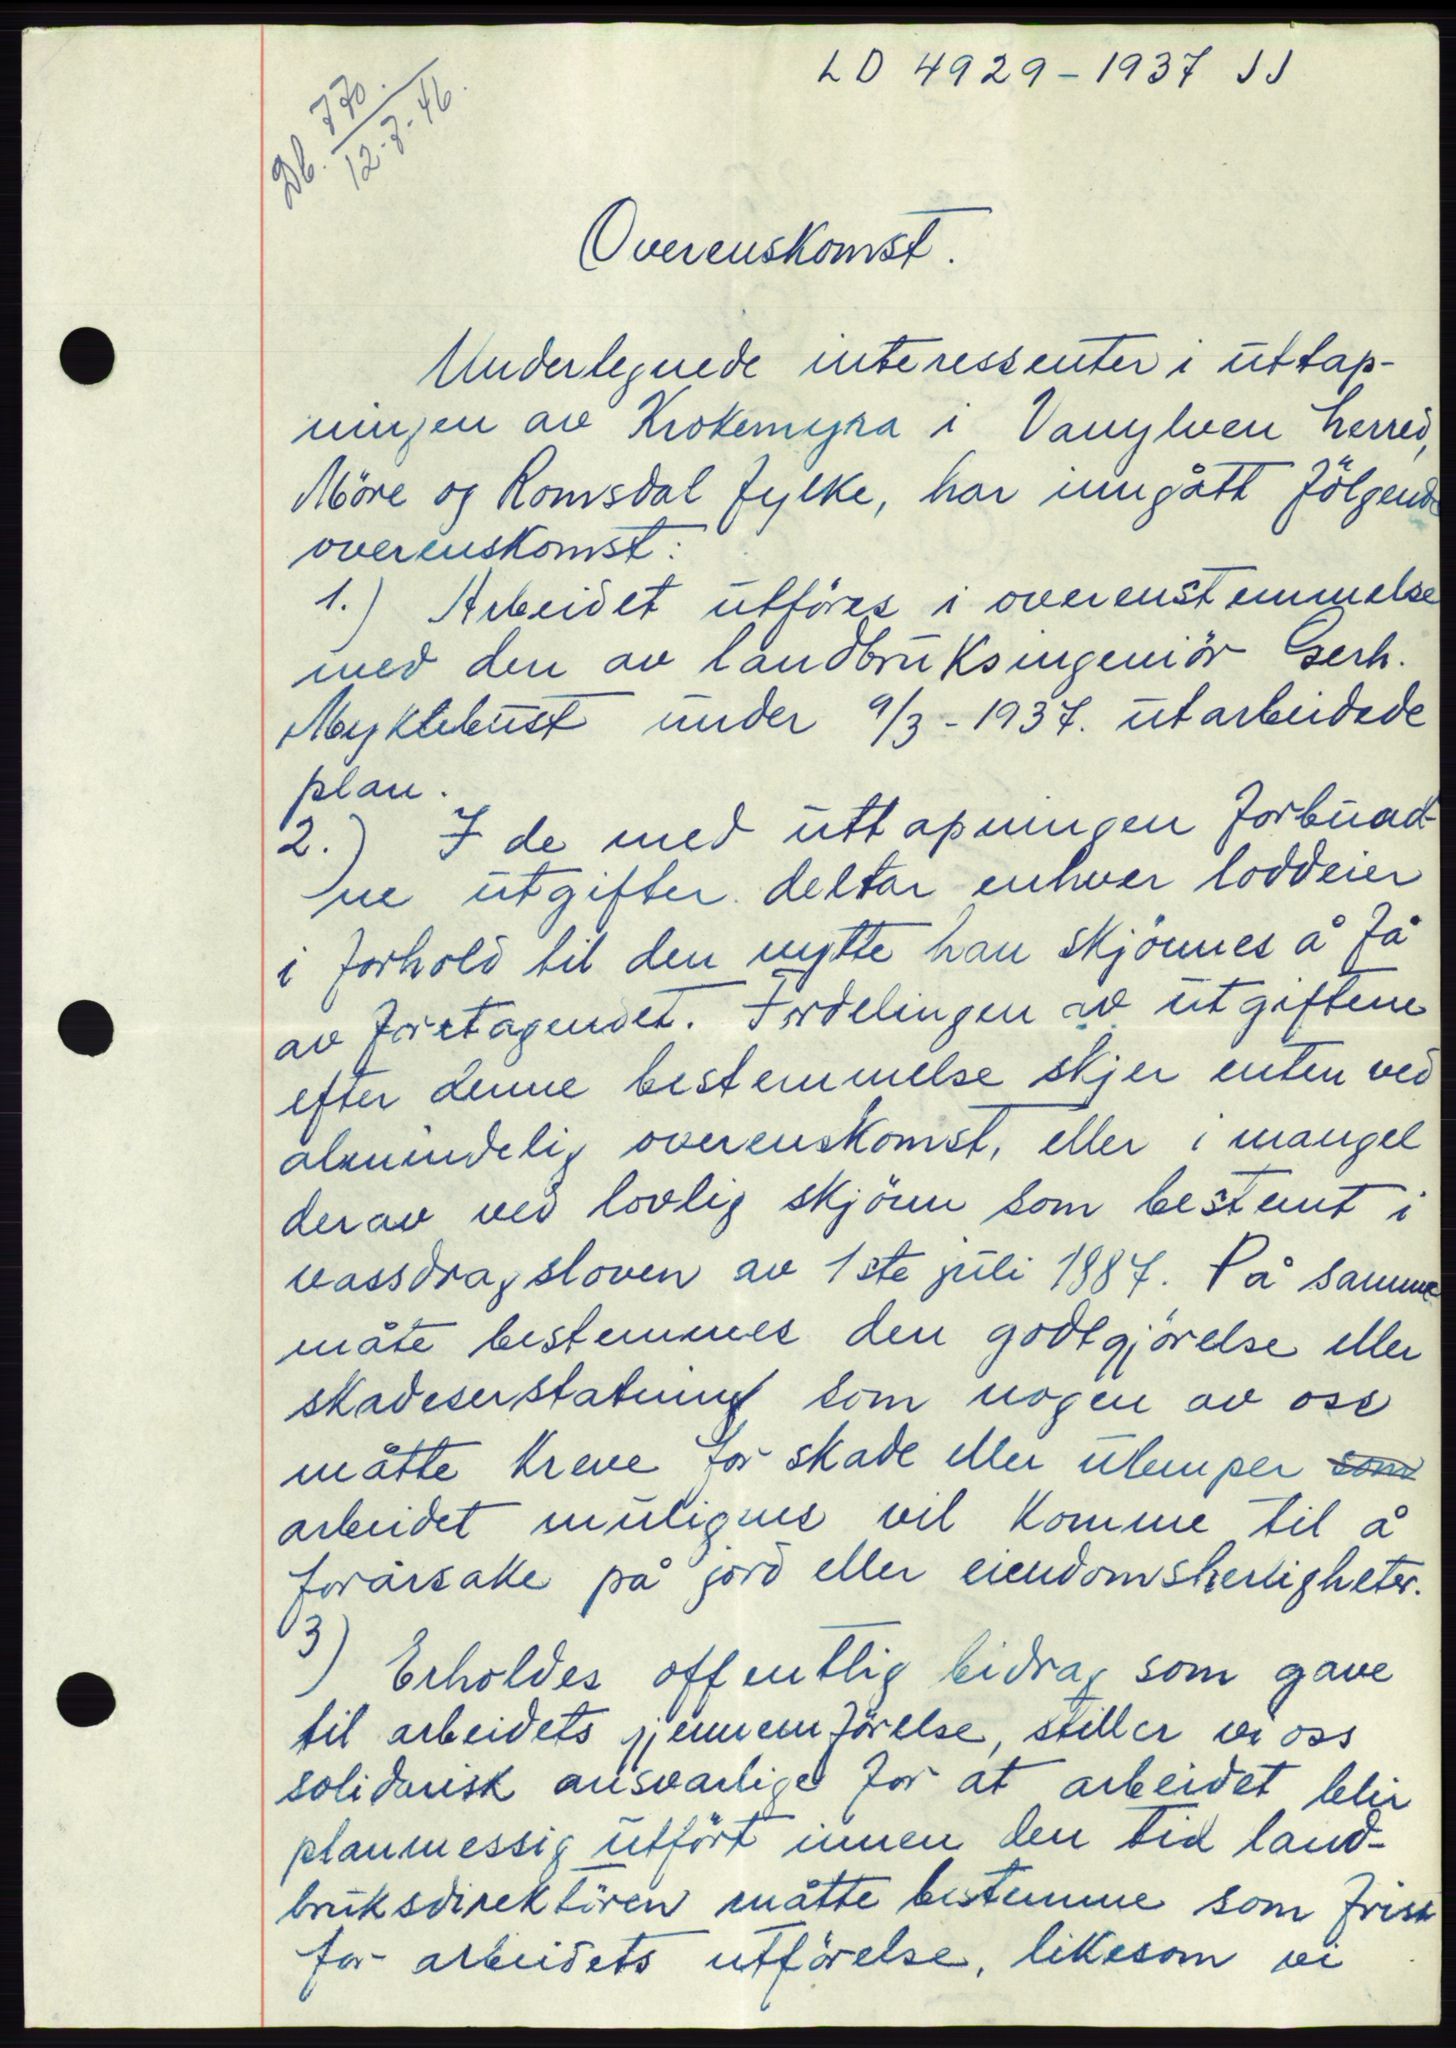 LD 4929-1937 JJ
Db. 770.
12-7-46.
Overenskomst.
Undertegnede interessenter i uttap-
ningen av Krokemyra i Vanylven herred,
Möre og Romsdal fylke, har inngått fölgende
overenskomst:
1.) Arbeidet utföres i overenstemmelse
med den av landbruksingeniör Gerh.
Myklebust under 9/3-1937. utarbeidede
plan.
2.) I de med uttapningen forbund-
ne utgifter deltar enhver loddeier
i forhold til den nytte han skjönnes å få
av foretagendet. Fordelingen av utgiftene
efter denne bestemmelse skjer enten ved
almindelig overenskomst, eller i mangel
derav ved lovlig skjönn som bestemt i
vassdragsloven av 1ste juli 1887. På samme
måte bestemmes den godtgjörelse eller
skadeserstatning som nogen av oss
måtte kreve for skade eller ulemper som
arbeidet muligens vil komme til å
forårsake på jord eller eiendomsherligheter.
3) Erholdes offentlig bidrag som gave
til arbeidets gjennemförelse, stiller vi oss
solidarisk ansvarlige for at arbeidet blir
planmessig utfört innen den tid land-
bruksdirektören måtte bestemme som frist
for arbeidets utförelse, likesom vi